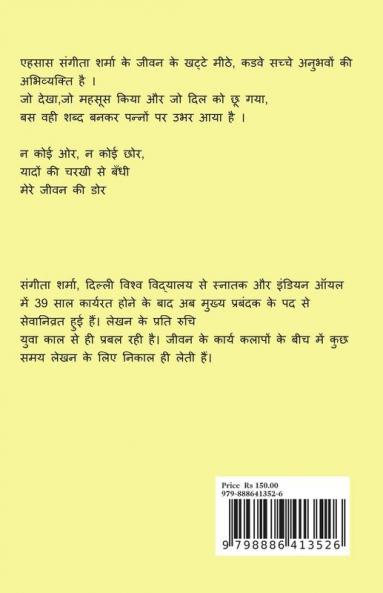 एहसास संगीता शर्मा के जीवन के खट्टे मीठे, कडवे सच्चे अनुभवों की
अभिव्यक्ति है ।
जो देखा,जो महसूस किया और जो दिल को छू गया,
बस वही शब्द बनकर पन्नों पर उभर आया है ।
न कोई ओर, न कोई छोर,
यादों की चरखी से बँधी
मेरे जीवन की डोर
संगीता शर्मा, दिल्ली विश्व विद्यालय से स्नातक और इंडियन ऑयल
में 39 साल कार्यरत होने के बाद अब मुख्य प्रबंदक के पद से
सेवानिव्रत हुई हैं। लेखन के प्रति रुचि
युवा काल से ही प्रबल रही है। जीवन के कार्य कलापों के बीच में कुछ
समय लेखन के लिए निकाल ही लेती हैं।
Price Rs 150.00
979-888641352-6
9 798886 413526